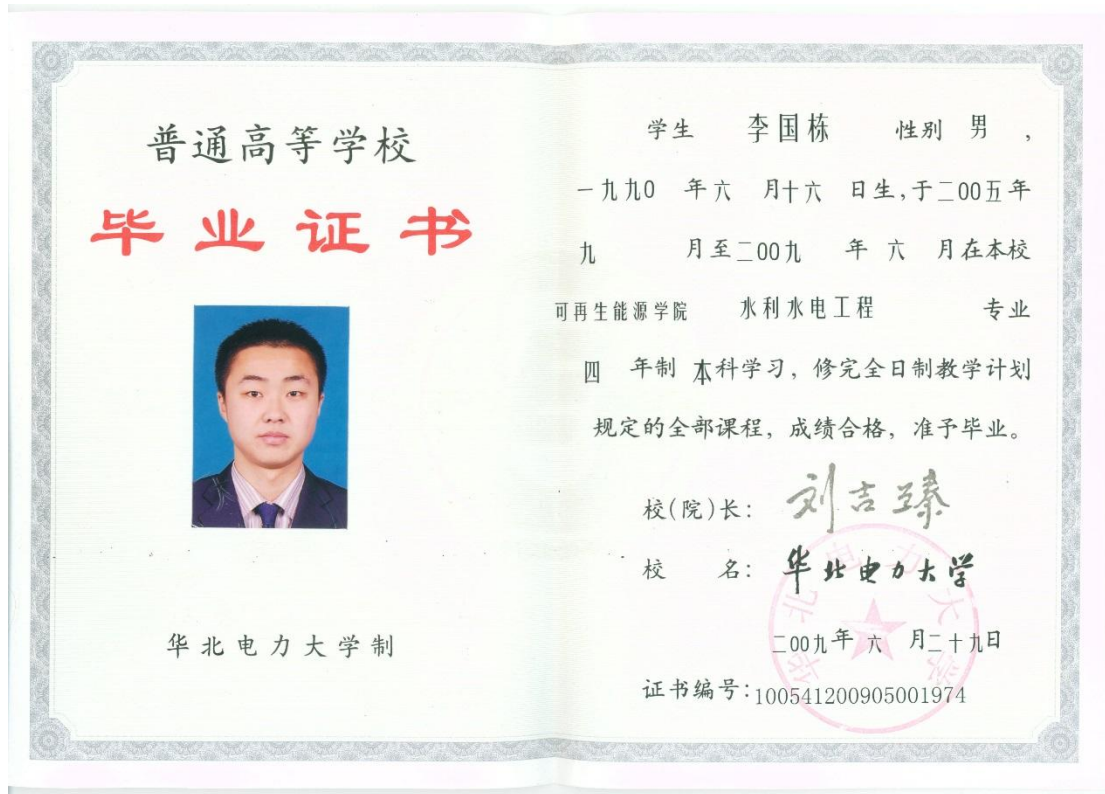 普通高等学校
毕业证书
华北电力大学制
学生 李国栋 性别 男 ，
一九九0 年六 月十六 日生,于二00五年
九 月至二00九 年 六 月在本校
可再生能源学院 水利水电工程 专业
四 年制 本科学习，修完全日制教学计划
规定的全部课程，成绩合格，准予毕业。
校(院)长： 刘吉臻
校 名： 华北电力大学
华北电力大学
二00九年 六 月二十九日
证书编号：100541200905001974